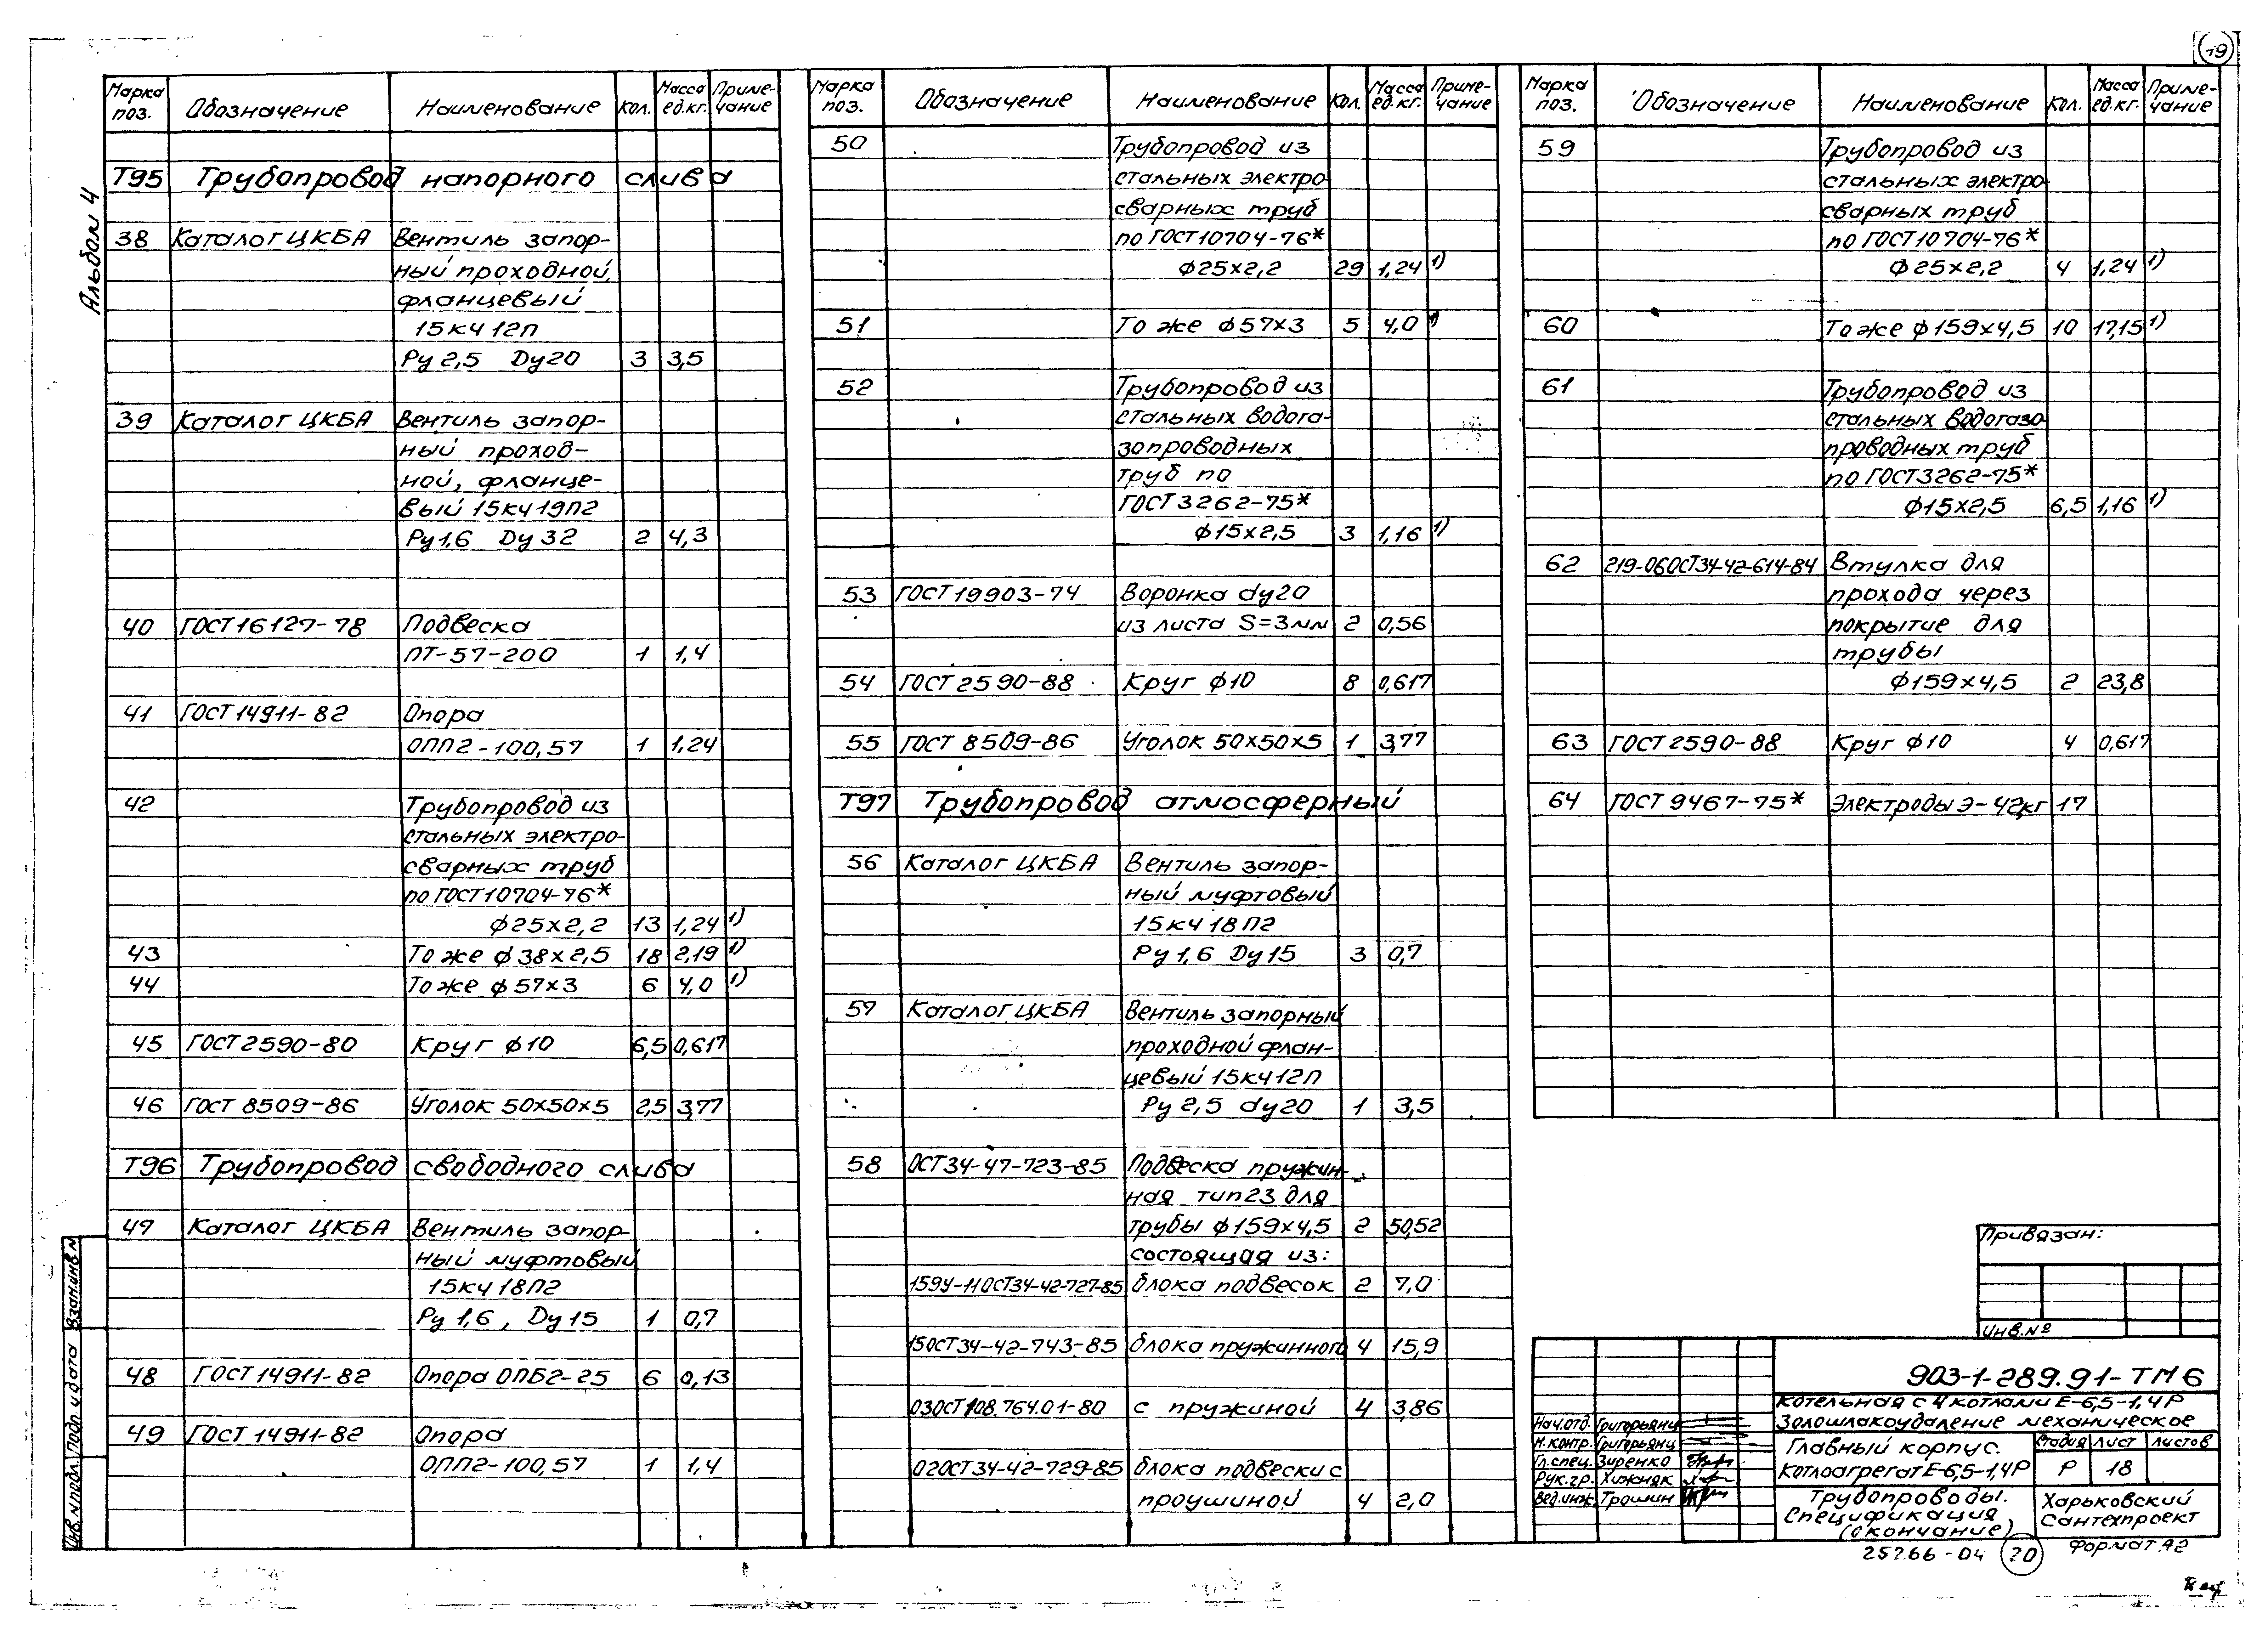 19
Альбом 4
Марка поз. Обозначение Наименование Кол. Масса ед.кг. Приме-чание
Т95 Трубопровод напорного слива
38 Каталог ЦКБА Вентиль запор-
ный проходной,
фланцевый
15кч12п
Ру 2,5 Dу20 3 3,5
39 Каталог ЦКБА Вентиль запор-
ный проход-
ной, фланце-
вый 15кч19п2
Ру1,6 Dу 32 2 4,3
40 ГОСТ 16127-78 Подвеска
ПТ-57-200 1 1,4
41 ГОСТ 14911-82 Опора
ОПП2-100,57 1 1,24
42 Трубопровод из
стальных электро-
сварных труб
по ГОСТ10704-76*
ф25х2,2 13 1,24 1)
43 То же ф38х2,5 18 2,19 1)
44 То же ф57х3 6 4,0 1)
45 ГОСТ 2590-80 Круг ф10 6,5 0,617
46 ГОСТ 8509-86 Уголок 50х50х5 2,5 3,77
Т96 Трубопровод свободного слива
47 Каталог ЦКБА Вентиль запор-
ный муфтовый
15кч18п2
Ру 1,6, Dу 15 1 0,7
48 ГОСТ 14911-82 Опора ОПБ2-25 6 0,13
49 ГОСТ 14911-82 Опора
ОПП2-100,57 1 1,4
Марка поз. Обозначение Наименование Кол. Масса ед.кг. Приме-чание
50 Трубопровод из
стальных электро-
сварных труб
по ГОСТ10704-76*
ф25х2,2 29 1,24 1)
51 То же ф57х3 5 4,0 1)
52 Трубопровод из
стальных водога-
зопроводных
труб по
ГОСТ3262-75*
ф15х2,5 3 1,16 1)
53 ГОСТ 19903-74 Воронка dу20
из листа S=3мм 2 0,56
54 ГОСТ 2590-88 Круг ф10 8 0,617
55 ГОСТ 8509-86 Уголок 50х50х5 1 3,77
Т97 Трубопровод атмосферный
56 Каталог ЦКБА Вентиль запор-
ный муфтовый
15кч18п2
Ру 1,6 Dу15 3 0,7
57 Каталог ЦКБА Вентиль запорный
проходной флан-
цевый 15кч12п
Ру 2,5 dу20 1 3,5
58 ОСТ34-47-723-85 Подвеска пружин-
ная тип23 для
трубы ф159х4,5 2 50,52
состоящая из:
159У-11ОСТ34-42-727-85 блока подвесок 2 7,0
15ОСТ34-42-743-85 блока пружинного 4 15,9
03ОСТ108.764.01-80 с пружиной 4 3,86
02ОСТ34-42-729-85 блока подвески с
проушиной 4 2,0
Марка поз. Обозначение Наименование Кол. Масса ед.кг. Приме-чание
59 Трубопровод из
стальных электро-
сварных труб
по ГОСТ10704-76*
ф25х2,2 4 1,24 1)
60 То же ф159х4,5 10 17,15 1)
61 Трубопровод из
стальных водогазо-
проводных труб
по ГОСТ3262-75*
ф15х2,5 6,5 1,16 1)
62 219-06ОСТ34-42-614-84 Втулка для
прохода через
покрытие для
трубы
ф159х4,5 2 23,8
63 ГОСТ 2590-88 Круг ф10 4 0,617
64 ГОСТ 9467-75* Электроды Э-42,кг 17
Привязан:
Инв.№
903-1-289.91-ТМ6
Котельная с 4 котлами Е-6,5-1,4Р
Золошлакоудаление механическое
Нач.отд. Григорьянц
Н.контр. Григорьянц
Гл.спец. Зиренко
Рук.гр. Хижняк
Вед.инж. Трошин
Главный корпус.
Котлоагрегат Е-6,5-1,4Р
Стадия Лист Листов
Р 18
Трубопроводы.
Спецификация
(окончание)
Харьковский
Сантехпроект
25266-04 20 Формат А2
Инв.№подл. Подп. и дата Взам.инв.№